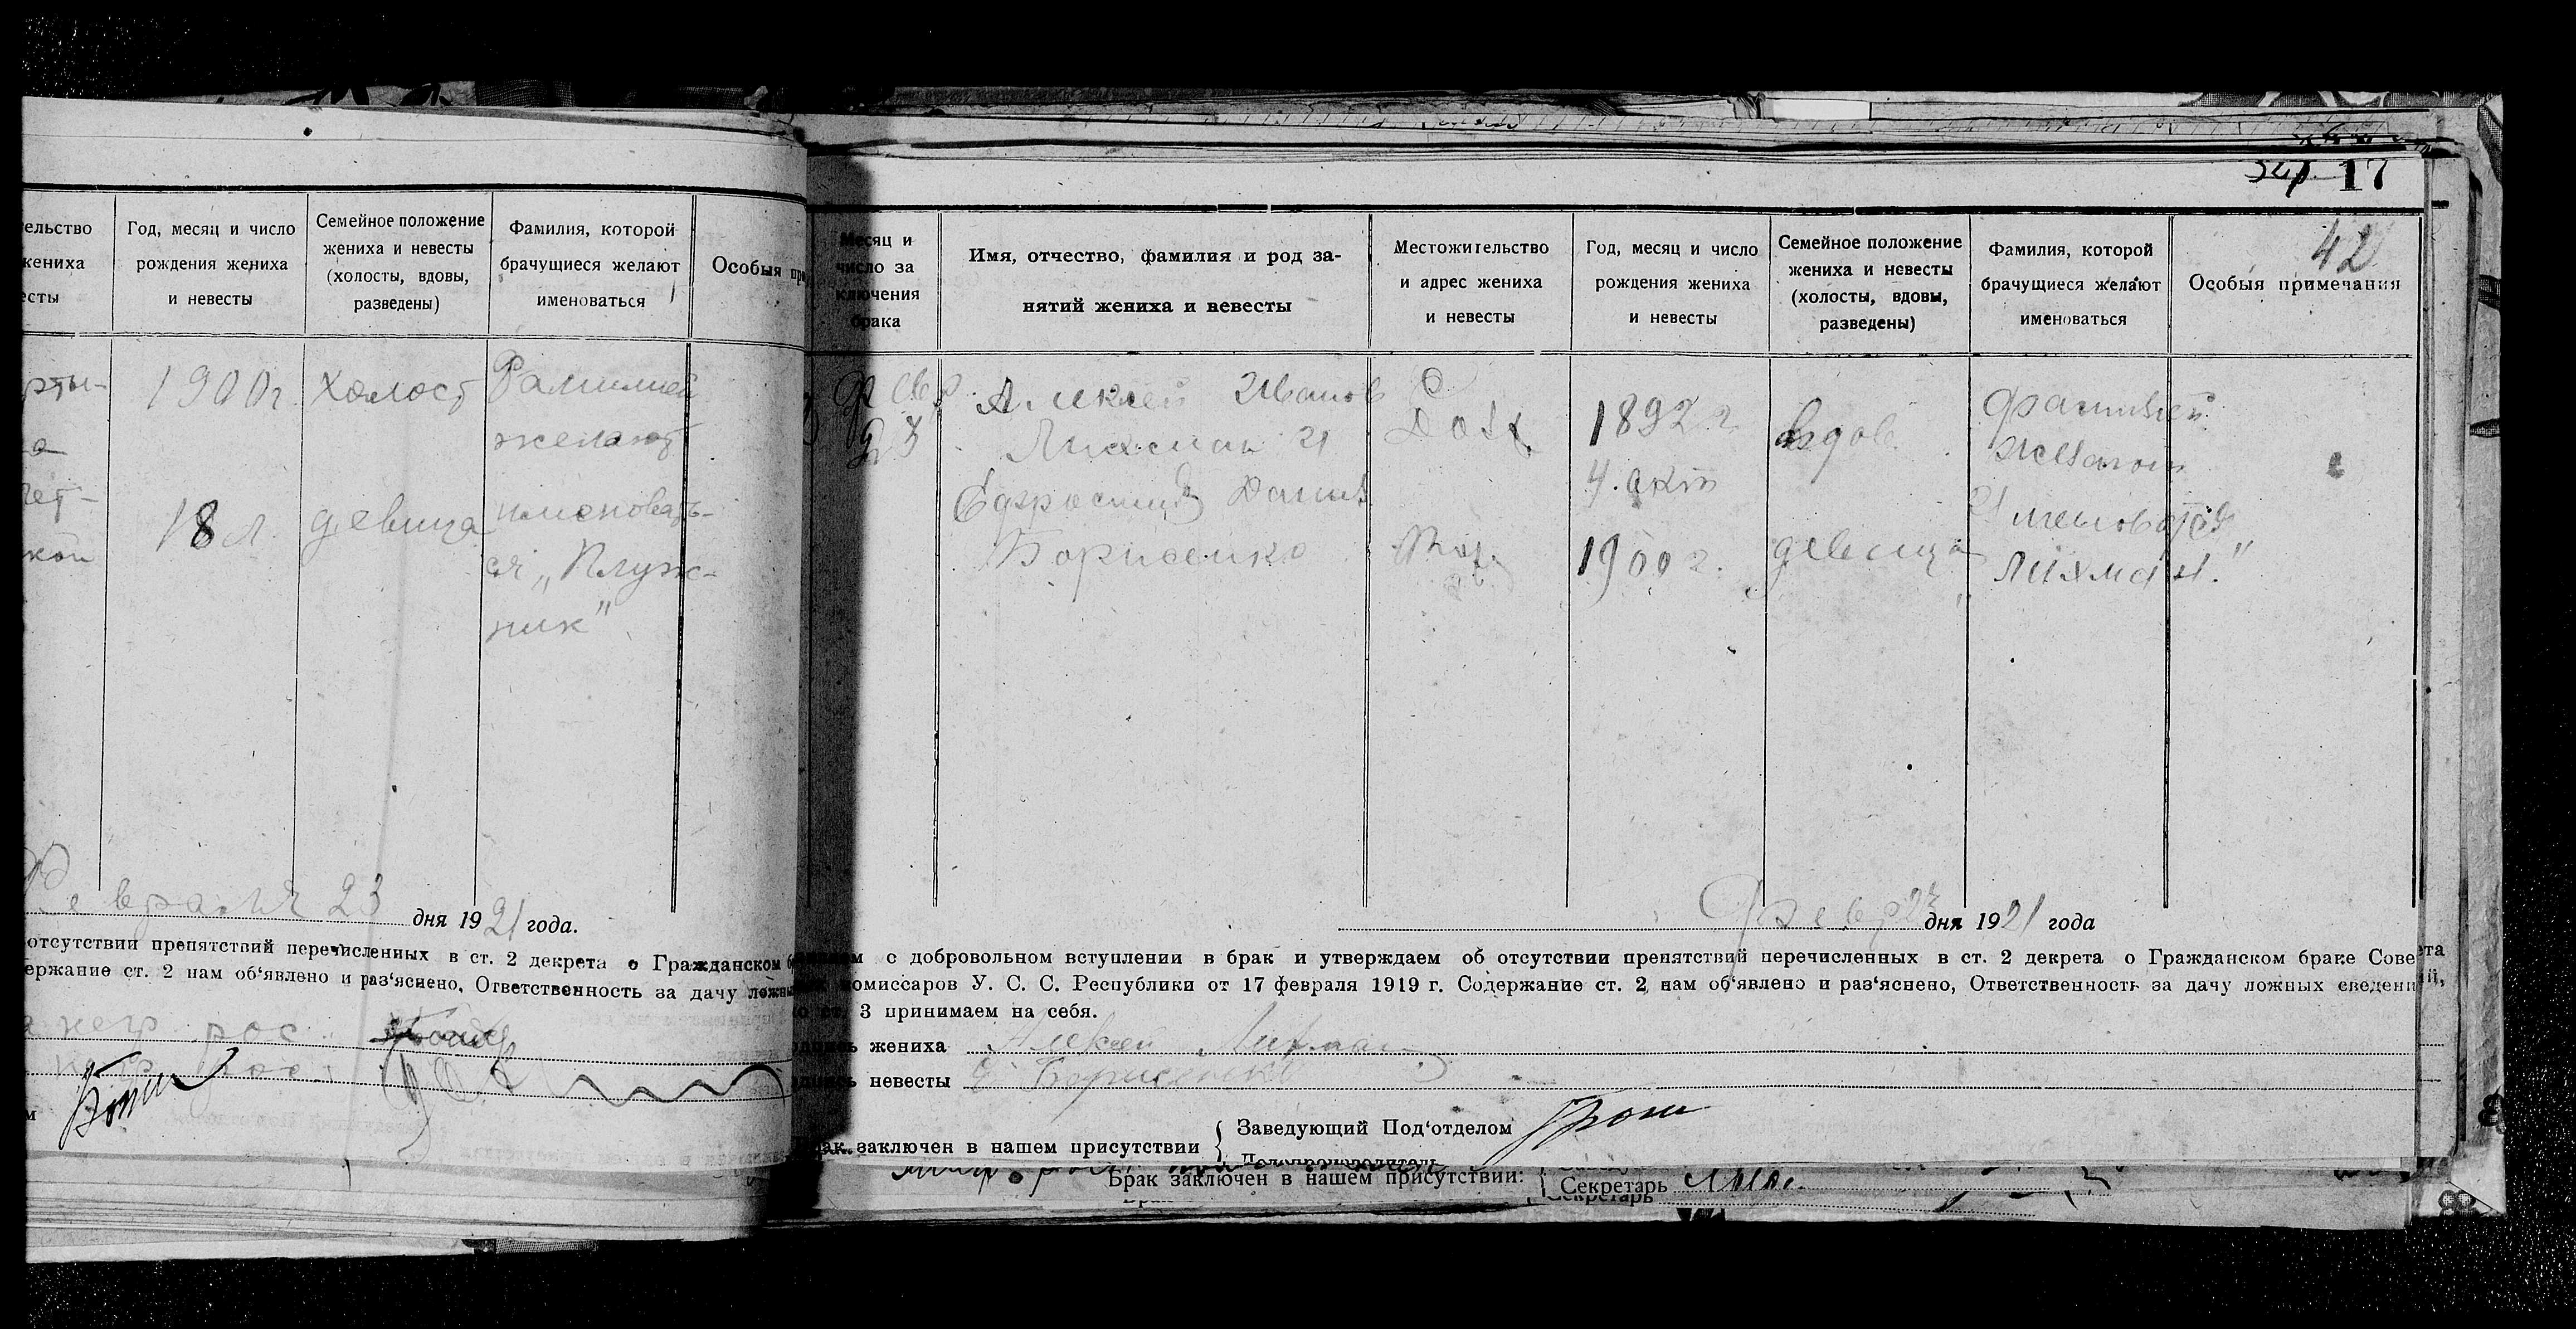 ельство
жениха
есты
Год, месяц и число
рождения жениха
и невесты
Семейное положение
жениха и невесты
(холосты, вдовы,
разведены)
Фамилия, которой
брачущиеся желают
именоваться
Особыя при
рты-
1900 г.
холост
Фамилией
желают
а
чет-
18 л.
девица
именовать-
кой
ся „Плуж-
ник"
Февраля 23 дня 1921 года.
отсутствии препятствий перечисленных в ст. 2 декрета о Гражданском
ержание ст. 2 нам об'явлено и раз'яснено, Ответственность за дачу ложны
негр рос
17
42
Месяц и
число за
ключения
брака
Имя, отчество, фамилия и род за-
нятий жениха и невесты
Местожительство
и адрес жениха
и невесты
Год, месяц и число
рождения жениха
и невесты
Семейное положение
жениха и невесты
(холосты, вдовы,
разведены)
Фамилия, которой
брачущиеся желают
именоваться
Особыя примечания
Февр
23
Алексей Иванов
Лихман 21
Ефросиния Данил
Борисенко
С
1892 г.
4. окт
1900 г.
вдов
девица
Фамилией
желают
именоватся
„Лихман."
Февр 23 дня 1921 года
с добровольном вступлении в брак и утверждаем об отсутствии препятствий перечисленных в ст. 2 декрета о Гражданском браке Совета
комиссаров У. С. С. Республики от 17 февраля 1919 г. Содержание ст. 2 нам об'явлено и раз'яснено, Ответственность за дачу ложных сведений,
ст. 3 принимаем на себя.
жениха Алексей Лихман
невесты Е Борисенко
Брак заключен в нашем присутствии
Заведующий Под'отделом
Делопроизводитель
Брак заключен в нашем присутствии:
Секретарь
Секретарь